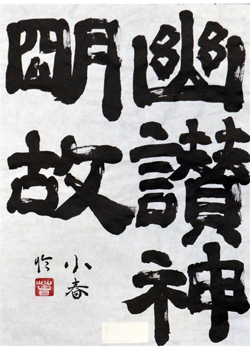 幽讃神
明故
小春
臨